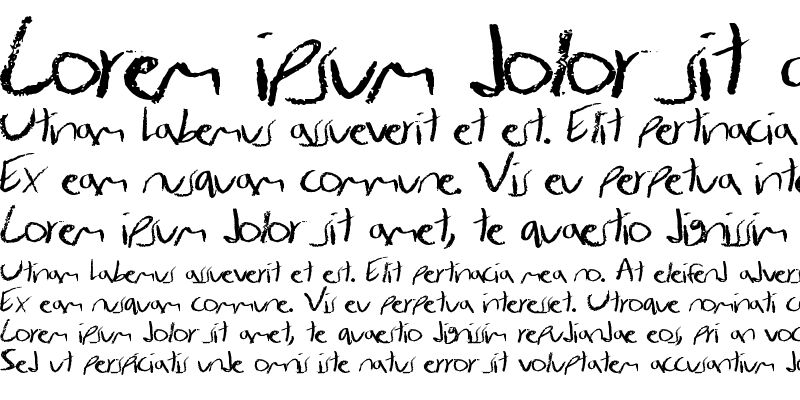 Lorem ipsum dolor sit a
Utinam labemus assueverit et est. Elit pertinacia
Ex eam nusquam commune. Vis eu perpetua inte
Lorem ipsum dolor sit amet, te quaestio dignissim
Utinam labemus assueverit et est. Elit pertinacia mea no. At eleifend advers
Ex eam nusquam commune. Vis eu perpetua interesset. Utroque nominati c
Lorem ipsum dolor sit amet, te quaestio dignissim repudiandae eos, pri an voc
Sed ut perspiciatis unde omnis iste natus error sit voluptatem accusantium do